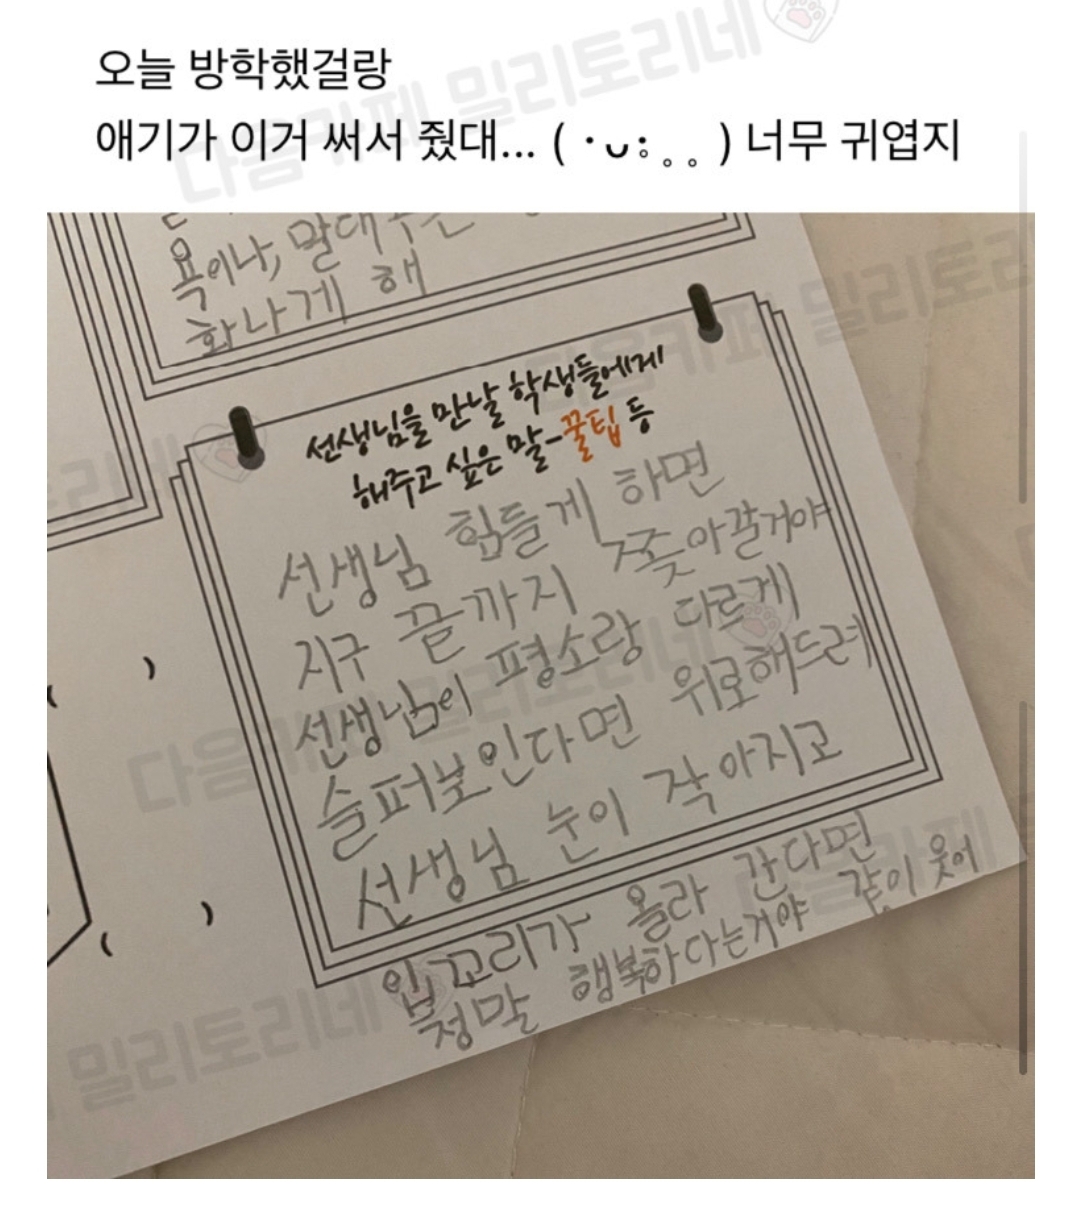 오늘 방학했걸랑
애기가 이거 써서 줬대... ( ･ᴗ: ｡｡) 너무 귀엽지
욕이나, 말대꾸는
화나게 해
선생님을 만날 학생들에게
해주고 싶은 말-꿀팁 등
선생님 힘들게 하면
지구 끝까지 쫓아갈거야
선생님이 평소랑 다르게
슬퍼보인다면 위로해드려
선생님 눈이 작아지고
입꼬리가 올라 간다면
정말 행복하다는거야 같이 웃어
다음카페 밀리토리네